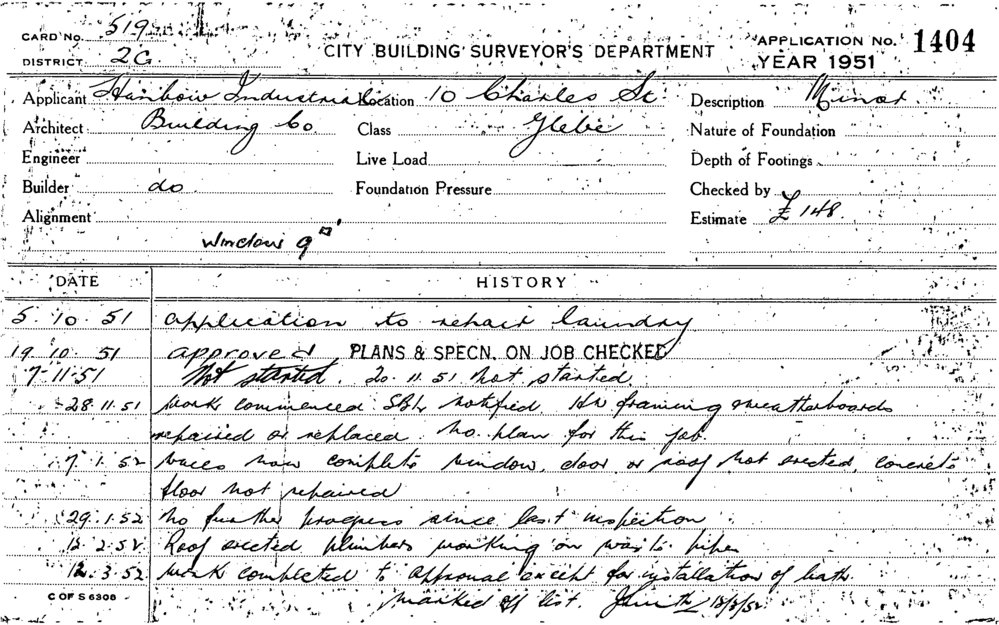 CARD No. 519
DISTRICT. 2G.
CITY BUILDING SURVEYOR'S DEPARTMENT
APPLICATION No. 1404
YEAR 1951
Applicant Hanbow Industrial Location 10 Charles St Description Minor
Architect Building Co Class Glebe Nature of Foundation
Engineer Live Load Depth of Footings
Builder do Foundation Pressure Checked by
Alignment Estimate £148
Window 9□'
DATE HISTORY
5. 10. 51 application to repair laundry
19. 10. 51 approved PLANS & SPECN. ON JOB CHECKED
7-11-51 Not started, 20. 11. 51 not started
28.11.51 work commenced notified framing weatherboards
repaired or replaced. No plan for this job
7. 1. 52 now complete window, door or roof not erected, concrete
floor not repaired
29. 1. 52 no further progress since last inspection
12. 2. 52 Roof erected plumbers working on waste pipe
12. 3. 52 work completed to approval except for installation of bath.
marked off list. JSmith
C OF S 6306